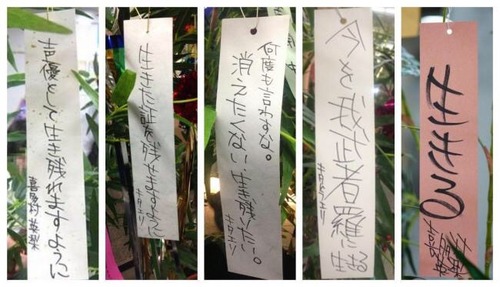 声優として生き残れますように
喜多村英梨
生きた証残せますように
キタエリ
何度も言わすな。
消えたくない生き残りたい。
キタエリ
今を我武者羅に生きる
キタエリ
喜多村英梨